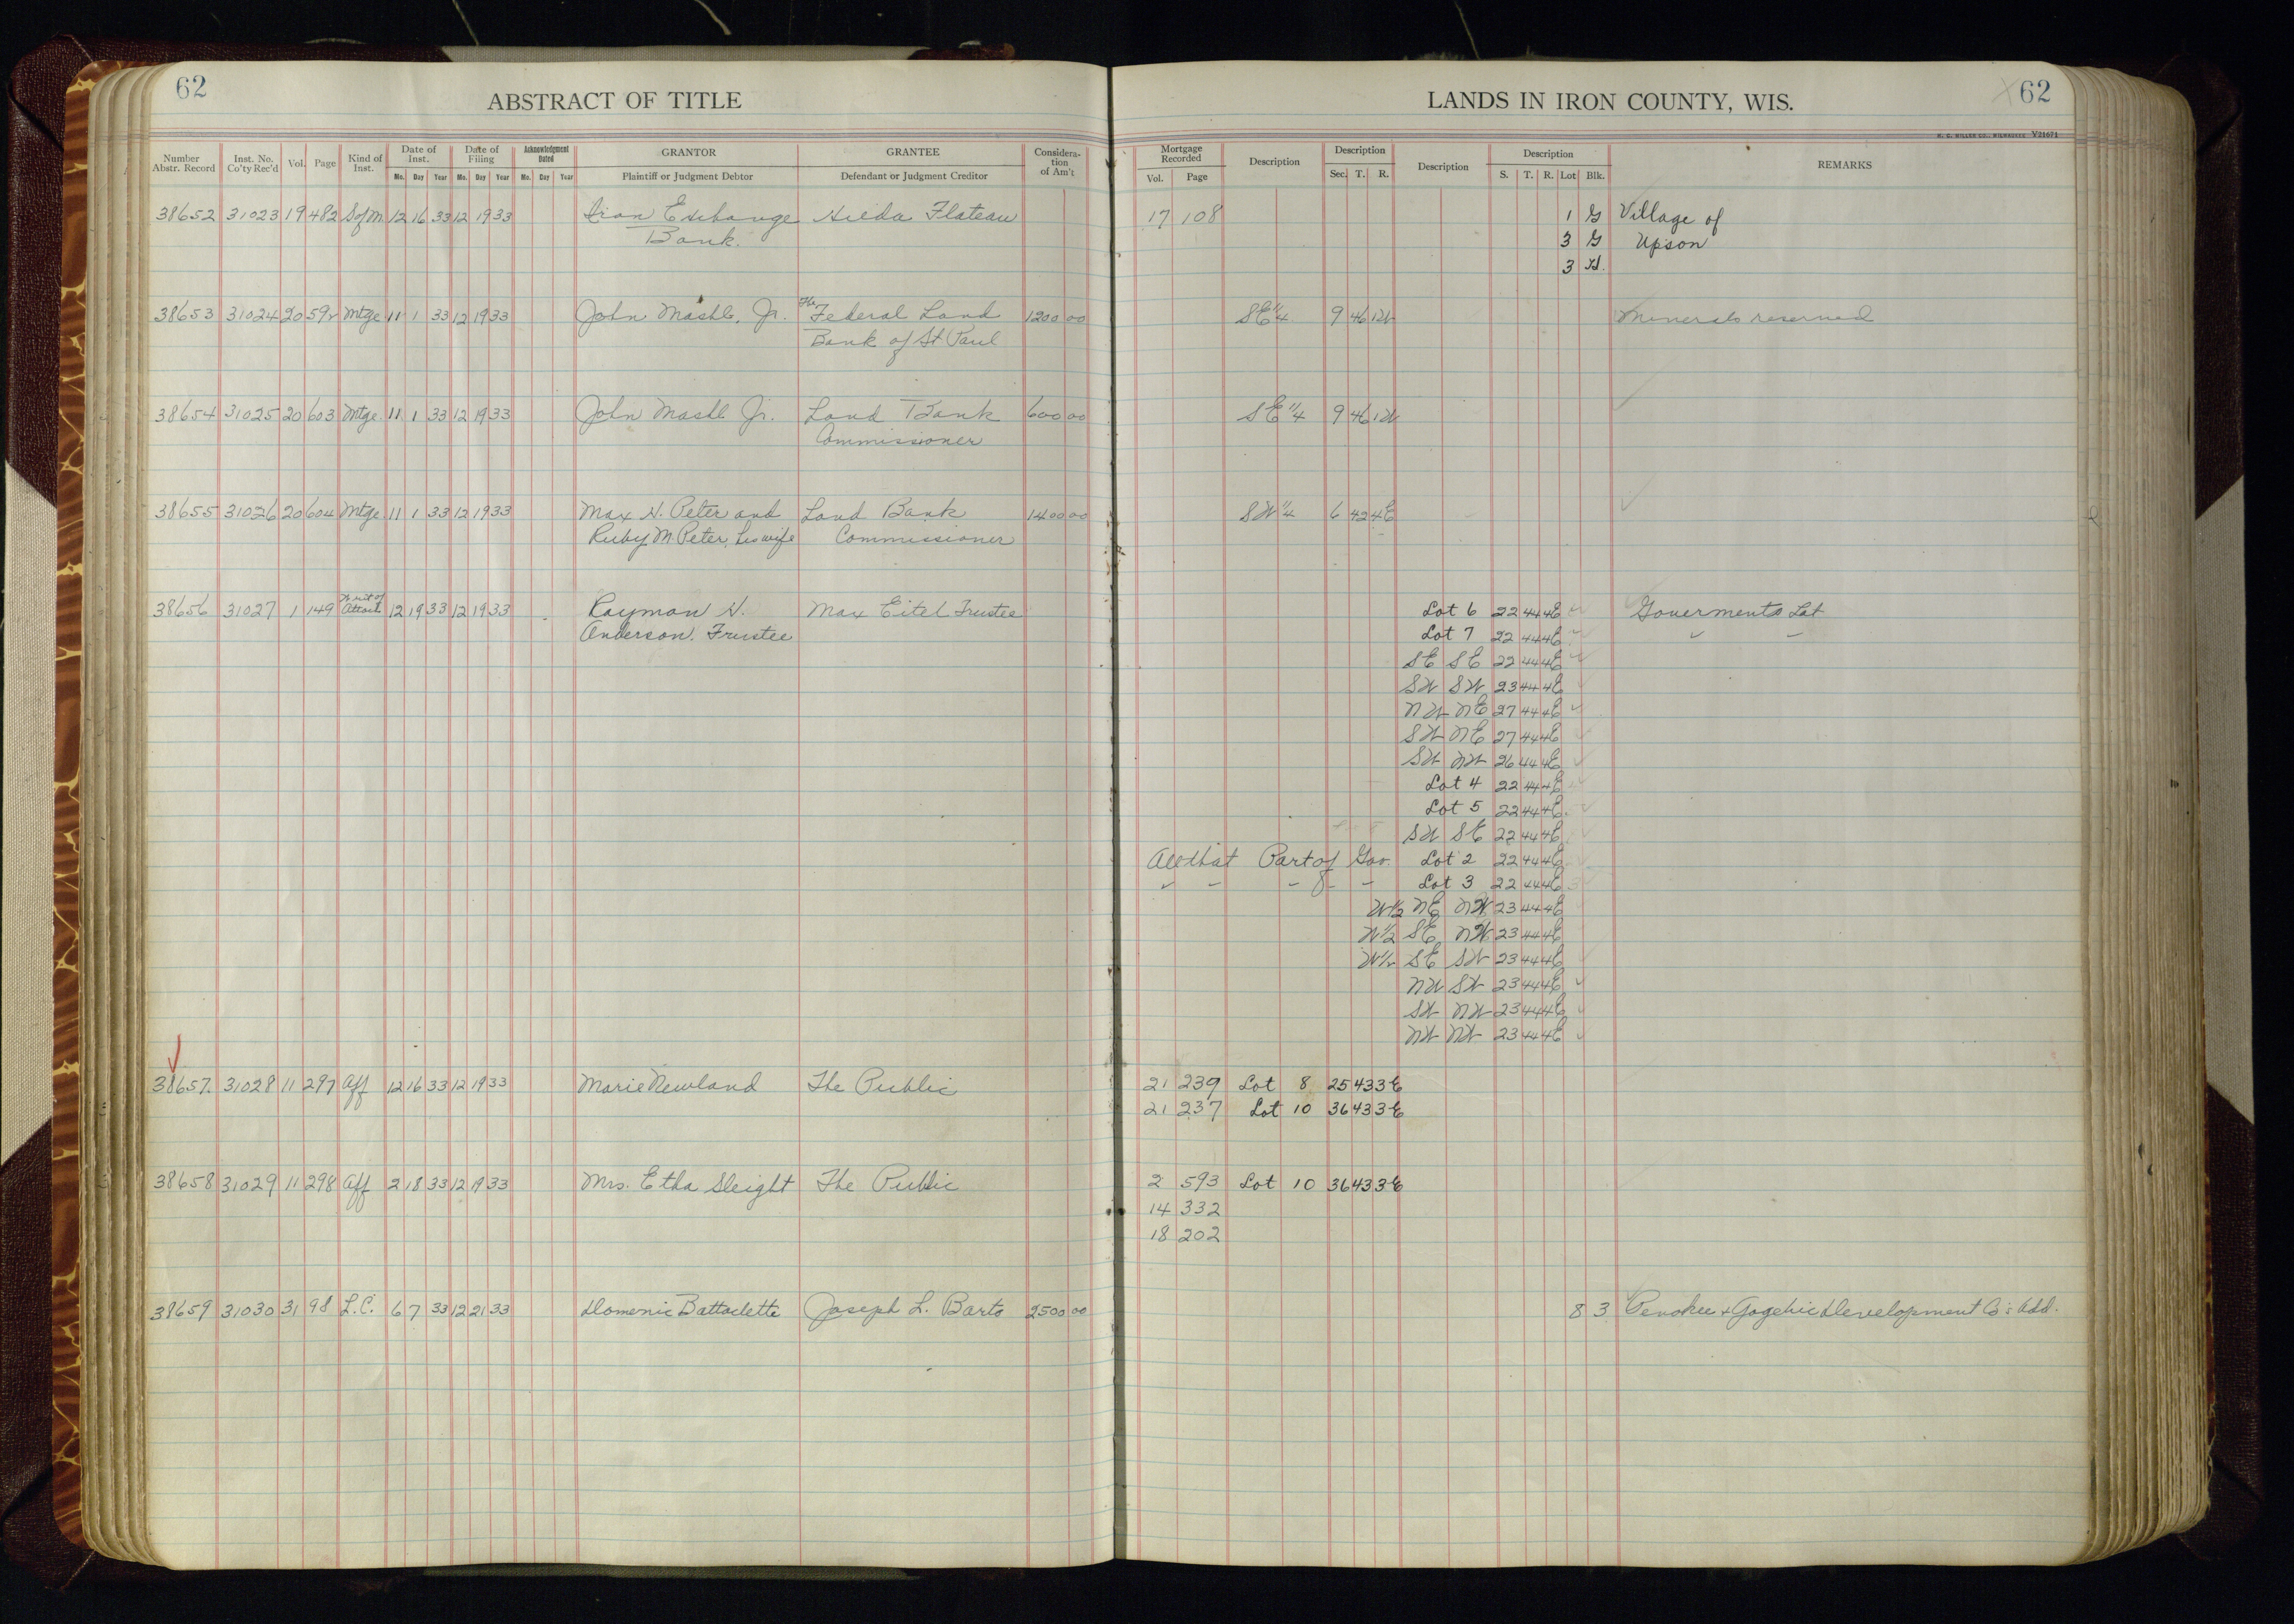 62
ABSTRACT OF TITLE
Number Abstr. Record Inst. No. Co'ty Rec'd Vol. Page Kind of Inst. Date of Inst. Mo. Day Year Date of Filing Mo. Day Year Acknowledgment Dated Mo. Day Year GRANTOR Plaintiff or Judgment Debtor GRANTEE Defendant or Judgment Creditor Considera-tion of Am't
38652 31023 19 482 S of M. 12 16 33 12 19 33 Iron Exchange Hilda Flateau
Bank.
38653 31024 20 592 Mtge 11 1 33 12 19 33 John Mashl, Jr. The Federal Land 1200 00
Bank of St Paul
38654 31025 20 603 Mtge. 11 1 33 12 19 33 John Mashl Jr. Land Bank 600 00
Commissioner
38655 31026 20 604 Mtge 11 1 33 12 19 33 Max H. Peter and Land Bank 1400 00
Ruby M. Peter, his wife Commissioner
38656 31027 1 149 Writ of Attach 12 19 33 12 19 33 Rayman N. Max Eitel Trustee
Anderson. Trustee
38657. 31028 11 297 Aff 12 16 33 12 19 33 Marie Newland The Public
38658 31029 11 298 Aff 2 18 33 12 19 33 Mrs. Etha Sleight The Public
38659 31030 31 98 L.C. 6 7 33 12 21 33 Domenic Battaclette Joseph L. Barto 2500 00
LANDS IN IRON COUNTY, WIS.
62
H. C. MILLER CO., MILWAUKEE V21671
Mortgage Recorded Vol. Page Description Description Sec. T. R. Description Description S. T. R. Lot Blk. REMARKS
17 108 1 G Village of
3 G Upson
3 H.
SE 1/4 9 46 1W Minerals reserved
SE 1/4 9 46 1W
SW 1/4 6 42 4E
Lot 6 22 44 4E Goverments Lot
Lot 7 22 44 4E " "
SE SE 22 44 4E
SW SW 23 44 4E
NW NE 27 44 4E
SW NE 27 44 4E
SW NW 26 44 4E
Lot 4 22 44 4E
Lot 5 22 44 4E
SW SE 22 44 4E
All that Part of Gov. Lot 2 22 44 4E
" " " " " Lot 3 22 44 4E
W1/2 NE NW 23 44 4E
W1/2 SE NW 23 44 4E
W1/2 SE SW 23 44 4E
NW SW 23 44 4E
SW NW 23 44 4E
NW NW 23 44 4E
21 239 Lot 8 25 43 3E
21 237 Lot 10 36 43 3E
2 593 Lot 10 36 43 3E
14 332
18 202
8 3 Penokee & Gogebic Development Co's Add.